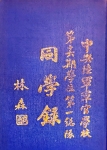 中央陸軍軍官學校
第十六期學生第一總隊
同學錄
林森